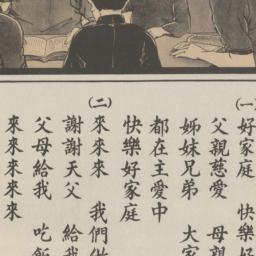 (一)
好家庭 快樂好
父親慈愛 母親
姊妹兄弟 大家
都在主愛中
快樂好家庭
(二)
來來來 我們
謝謝天父 給我
父母給我 吃飯
來來來來來